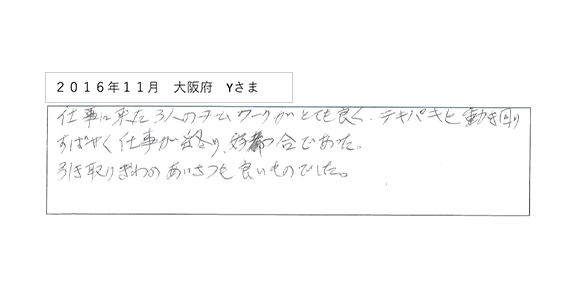 2016年11月　大阪府　Yさま
仕事に来た3人のチームワークがとても良く、テキパキと動き回り
すばやく仕事が終り、好都合であった。
引き取りぎわのあいさつも良いものでした。